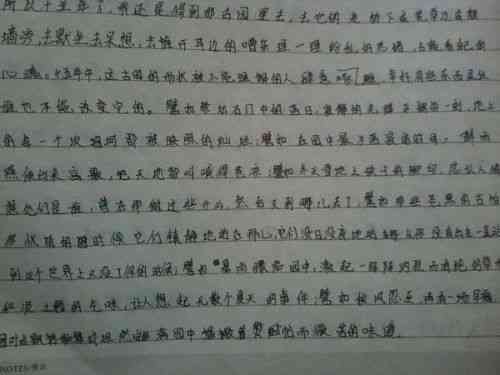 所以十五年了,我还是得到那古园里去,去他的老树下或荒草边或颓
墙旁,去默坐去呆想,去推开耳边的嘈杂理一理纷乱的思绪,去窥看自己的
心魂。十五年中,这古园的形状被不能理解的人肆意雕 幸好有些东西是任
谁也不能改变它的。譬如祭坛石门中的落日,寂静的光辉平铺的一刻,地上
的每一个坎坷都被映照的灿烂;譬如在园中最为落寞的时间,一群雨
燕便出来高歌,把天地都叫喊得苍凉;譬如冬天雪地上孩子的脚印,总让人猜
想他们是谁,曾在哪做过些什么,然后又都哪儿去了;譬如那些苍黑的古柏
你忧郁的时候它们镇静地站在那儿,它们没日没夜地站在那儿从你没有出生一直站
到这个世界上又没了你的时候;譬如暴雨骤临园中,激起一阵阵灼烈而清纯的草木
和泥土的气味,让人想起无数个夏天的事件;譬如秋风忽至,再有一场早霜,
落叶或飘摇歌舞或坦然安卧,满园中播散着熨帖而微苦的味道。
NOTES